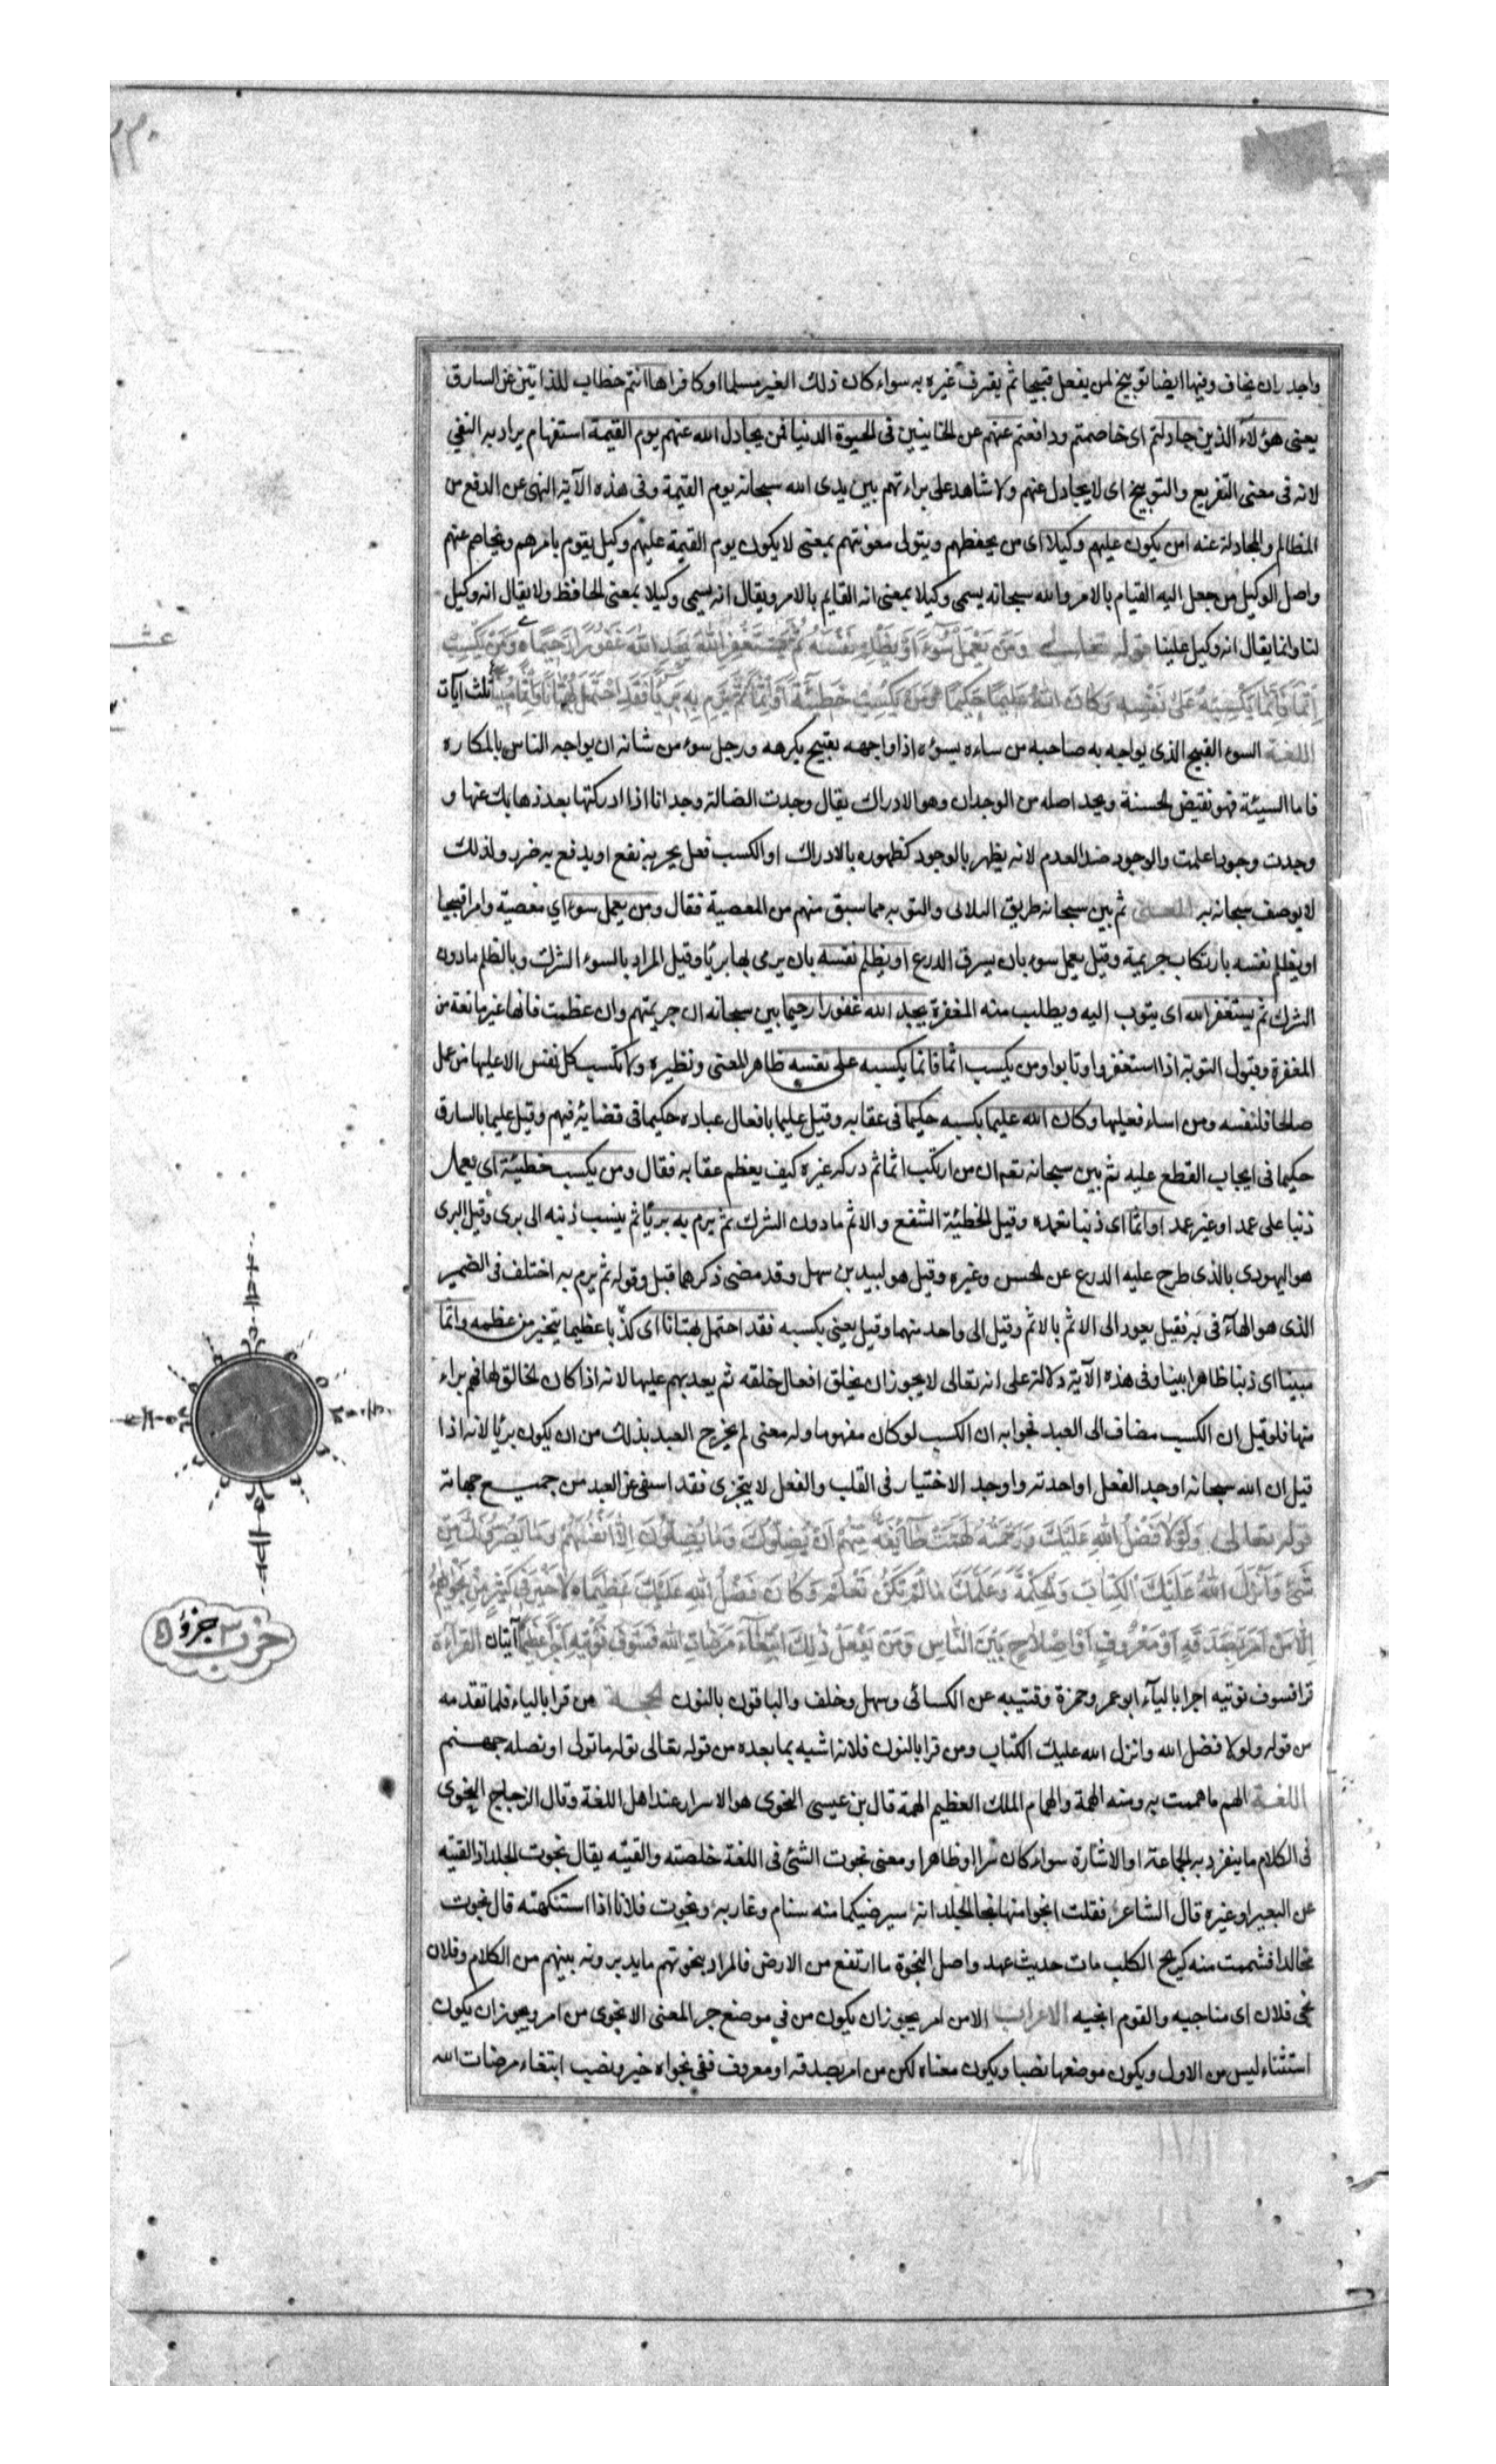 واجدر ان يخاف وفيها ايضا توبيخ لمن يفعل قبيحا ثم يقرف غيره به سواء كان ذلك الغير مسلما او كافرا ها انتم خطاب للذابين عن السارق
يعنى هؤلآء الذين جادلتم اى خاصمتم ودافعتم عنهم عن الخاينين فى الحيوة الدنيا فمن يجادل الله عنهم يوم القيمة استفهام يراد به النفي
لانه فى معنى التقريع والتوبيخ اى لا يجادل عنهم ولا شاهد على براءتهم بين يدى الله سبحانه يوم القيمة وفى هذه الآية النهى عن الدفع من
المظالم والمجادلة عنه امن يكون عليهم وكيلا اى من يحفظهم ويتولى معونتهم بمعنى لا يكون يوم القيمة عليهم وكيل يقوم بامرهم ويخاصم عنهم
واصل الوكيل من جعل اليه القيام بالامر والله سبحانه يسمى وكيلا بمعنى انه القايم بالامر ويقال انه يسمى وكيلا بمعنى الحافظ ولا يقال انه وكيل
لنا وانما يقال انه وكيل علينا قوله تعالى وَمَن يَعْمَل سُوءً اَوْ يَظْلِمْ نَفْسَهُ ثُمَّ يَسْتَغْفِرِ اللهَ يَجِدِ اللهَ غَفُورًا رَحِيمًا وَمَنْ يَكْسِبْ
اِثْمًا فَاِنَّمَا يَكْسِبُهُ عَلَى نَفْسِهِ وَكَانَ اللهُ عَلِيمًا حَكِيمًا وَمَنْ يَكْسِبْ خَطِيئَةً اَوْ اِثْمًا ثُمَّ يَرْمِ بِهِ بَرِيئًا فَقَدِ احْتَمَلَ بُهْتَانًا وَاِثْمًا مُبِينًا ثلث آيات
اللغة السوء القبيح الذى يواجه به صاحبه من ساءه يسوءه اذا واجهه بقبيح يكرهه ورجل سوء من شانه ان يواجه الناس بالمكاره
فاما السيئة فهو نقيض الحسنة ويجد اصله من الوجدان وهو الادراك يقال وجدت الضالة وجدانا اذا ادركتها بعد ذهابك عنها و
وجدت وجودا علمت والوجود ضد العدم لانه يظهر بالوجود كظهوره بالادراك او الكسب فعل يجر به نفع او يدفع به ضرر ولذلك
لا يوصف سبحانه به المعنى ثم بين سبحانه طريق التلافى والتوبه مما سبق منهم من المعصية فقال ومن يعمل سوء اي معصية وامرا قبيحا
او يظلم نفسه بارتكاب جريمة وقيل يعمل سوء بان يسرق الدرع او يظلم نفسه بان يرمى بها بريئا وقيل المراد بالسوء الشرك وبالظلم ما دون
الشرك ثم يستغفر الله اى يتوب اليه ويطلب منه المغفرة يجد الله غفورا رحيما بين سبحانه ان جريمتهم وان عظمت فانها غير مانعة من
المغفرة وقبول التوبة اذا استغفروا وتابوا ومن يكسب اثما فانما يكسبه على نفسه ظاهر المعنى ونظيره ولا تكسب كل نفس الا عليها من عمل
صالحا فلنفسه ومن اساء فعليها وكان الله عليما بكسبه حكيما فى عقابه وقيل عليما بافعال عباده حكيما فى قضائه فيهم وقيل عليما بالسارق
حكيما فى ايجاب القطع عليه ثم بين سبحانه ان من ارتكب اثما ثم غيره كيف يعظم عقابه فقال ومن يكسب خطيئة اى يعمل
ذنبا على عمد او غير عمد او اثما اى ذنبا تعمده وقيل الخطيئة الشفع والاثم ما دون الشرك ثم يرم به بريئا ثم ينسب ذنبه الى برى وقيل البرى
هو اليهودى بالذى طرح عليه الدرع عن الحسن وغيره وقيل هو لبيد بن سهل وقد مضى ذكرهما قبل وقوله ثم يرم به اختلف فى الضمير
الذى هو الهآء فى به فقيل يعود الى الاثم بالاثم وقيل الى واحد منهما وقيل يعنى بكسبه فقد احتمل بهتانا اى كذبا عظيما يتحير من عظمه واثما
مبينا اى ذنبا ظاهرا بينا وفى هذه الآية دلالة على انه تعالى لا يجوز ان يخلق افعال خلقه ثم يعذبهم عليها لانه اذا كان الخالق لها فهم براء
منها فلو قيل ان الكسب مضاف الى العبد فجوابه ان الكسب لو كان مفهوما وله معنى لم يخرج العبد بذلك من ان يكون بريئا لانه اذا
قيل ان الله سبحانه اوجد الفعل واوجد الاختيار فى القلب والفعل لا يتجزى فقد انتفى عن العبد من جميع جهاته
قوله تعالى وَلَوْلَا فَضْلُ اللهِ عَلَيْكَ وَرَحْمَتُهُ لَهَمَّتْ طَآئِفَةٌ مِنْهُمْ اَنْ يُضِلُّوكَ وَمَا يُضِلُّونَ اِلَّا اَنْفُسَهُمْ وَمَا يَضُرُّونَكَ مِنْ
شَىْءٍ وَاَنْزَلَ اللهُ عَلَيْكَ الْكِتَابَ وَالْحِكْمَةَ وَعَلَّمَكَ مَا لَمْ تَكُنْ تَعْلَمُ وَكَانَ فَضْلُ اللهِ عَلَيْكَ عَظِيمًا لَا خَيْرَ فِى كَثِيرٍ مِنْ نَجْوٰيهُمْ
اِلَّا مَنْ اَمَرَ بِصَدَقَةٍ اَوْ مَعْرُوفٍ اَوْ اِصْلَاحٍ بَيْنَ النَّاسِ وَمَنْ يَفْعَلْ ذٰلِكَ ابْتِغَآءَ مَرْضَاتِ اللهِ فَسَوْفَ نُؤْتِيهِ اَجْرًا عَظِيمًا آيتان القرآءة
قرا فسوف يؤتيه اجرا باليآء ابو عمر وحمزة وقتيبه عن الكسائى وسهل وخلف والباقون بالنون الحجة من قرا بالياء فلما تقدمه
من قوله ولولا فضل الله وانزل الله عليك الكتاب ومن قرا بالنون فلانه اشبه بما بعده من قوله تعالى نوله ما تولى او نصله جهنم
اللغة الهم ما هممت به ومنه الهمة والهمام الملك العظيم الهمة قال بن عيسى النجوى هو الاسرار عند اهل اللغة وقال الزجاج النجوى
فى الكلام ما ينفرد به الجماعة او الاشارة سواء كان سرا او ظاهرا ومعنى نجوت الشئ فى اللغة خلصته والقيته يقال نجوت الجلد اذا القيته
عن البعير او غيره قال الشاعر فقلت انجوا منها نجا الجلد انه سيرضيكما منه سنام وغاربه ونجوت فلانا اذا استنكهته قال نجوت
مجالدا فشممت منه كريح الكلب مات حديث عهد واصل النجوة ما ارتفع من الارض فالمراد بنجوتهم ما يدبرونه بينهم من الكلام وفلان
نجى فلان اى مناجيه والقوم انجيه الاعراب الا من امر يجوز ان يكون من فى موضع جر المعنى الا نجوى من امر ويجوز ان يكون
استثناء ليس من الاول ويكون موضعها نصبا ويكون معناه لكن من امر بصدقة او معروف ففى نجواه خير ونصب ابتغاء مرضات الله
عشـ
حزب ٣ جزؤ ٥